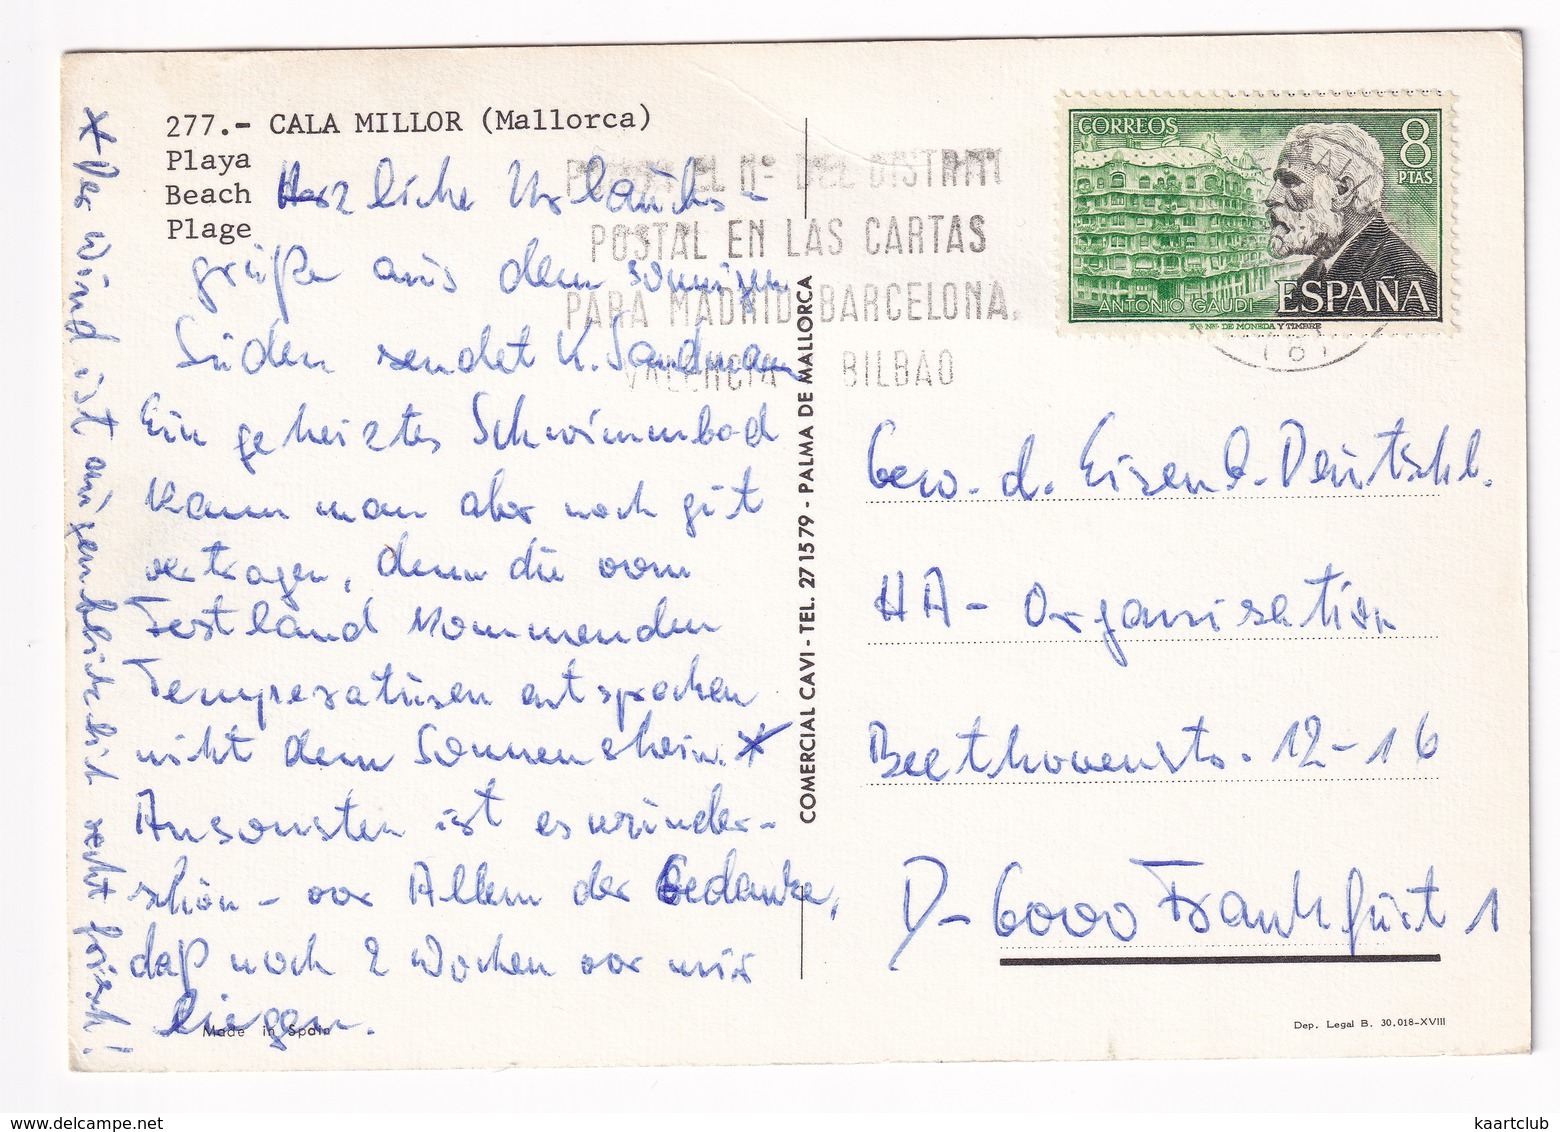 277.- CALA MILLOR (Mallorca)
Playa
Beach
Plage
Herzliche Urlaubs-
grüße aus dem sonnigen
Süden sendet K. Sandmann
Ein geheiztes Schwimmbad
kann man aber noch gut
vertragen, denn die vom
Festland kommenden
Temperaturen entsprechen
nicht dem Sonnenschein.*
Ansonsten ist es wunder-
schön - vor Allem der Gedanke,
daß noch 2 Wochen vor mir
liegen.
* Der Wind ist augenblicklich recht frisch!
Made in Spain
COMERCIAL CAVI - TEL. 27 15 79 - PALMA DE MALLORCA
EL Nº DEL DISTRIT
POSTAL EN LAS CARTAS
PARA MADRID BARCELONA,
VALENCIA BILBAO
CORREOS
8
PTAS
ANTONIO GAUDI
ESPAÑA
F. N. DE MONEDA Y TIMBRE
Gew. d. Eisenb. Deutschl.
HA - Organisation
Beethovenstr. 12-16
D- 6000 Frankfurt 1
Dep. Legal B. 30.018-XVIII
kaartclub
www.delcampe.net